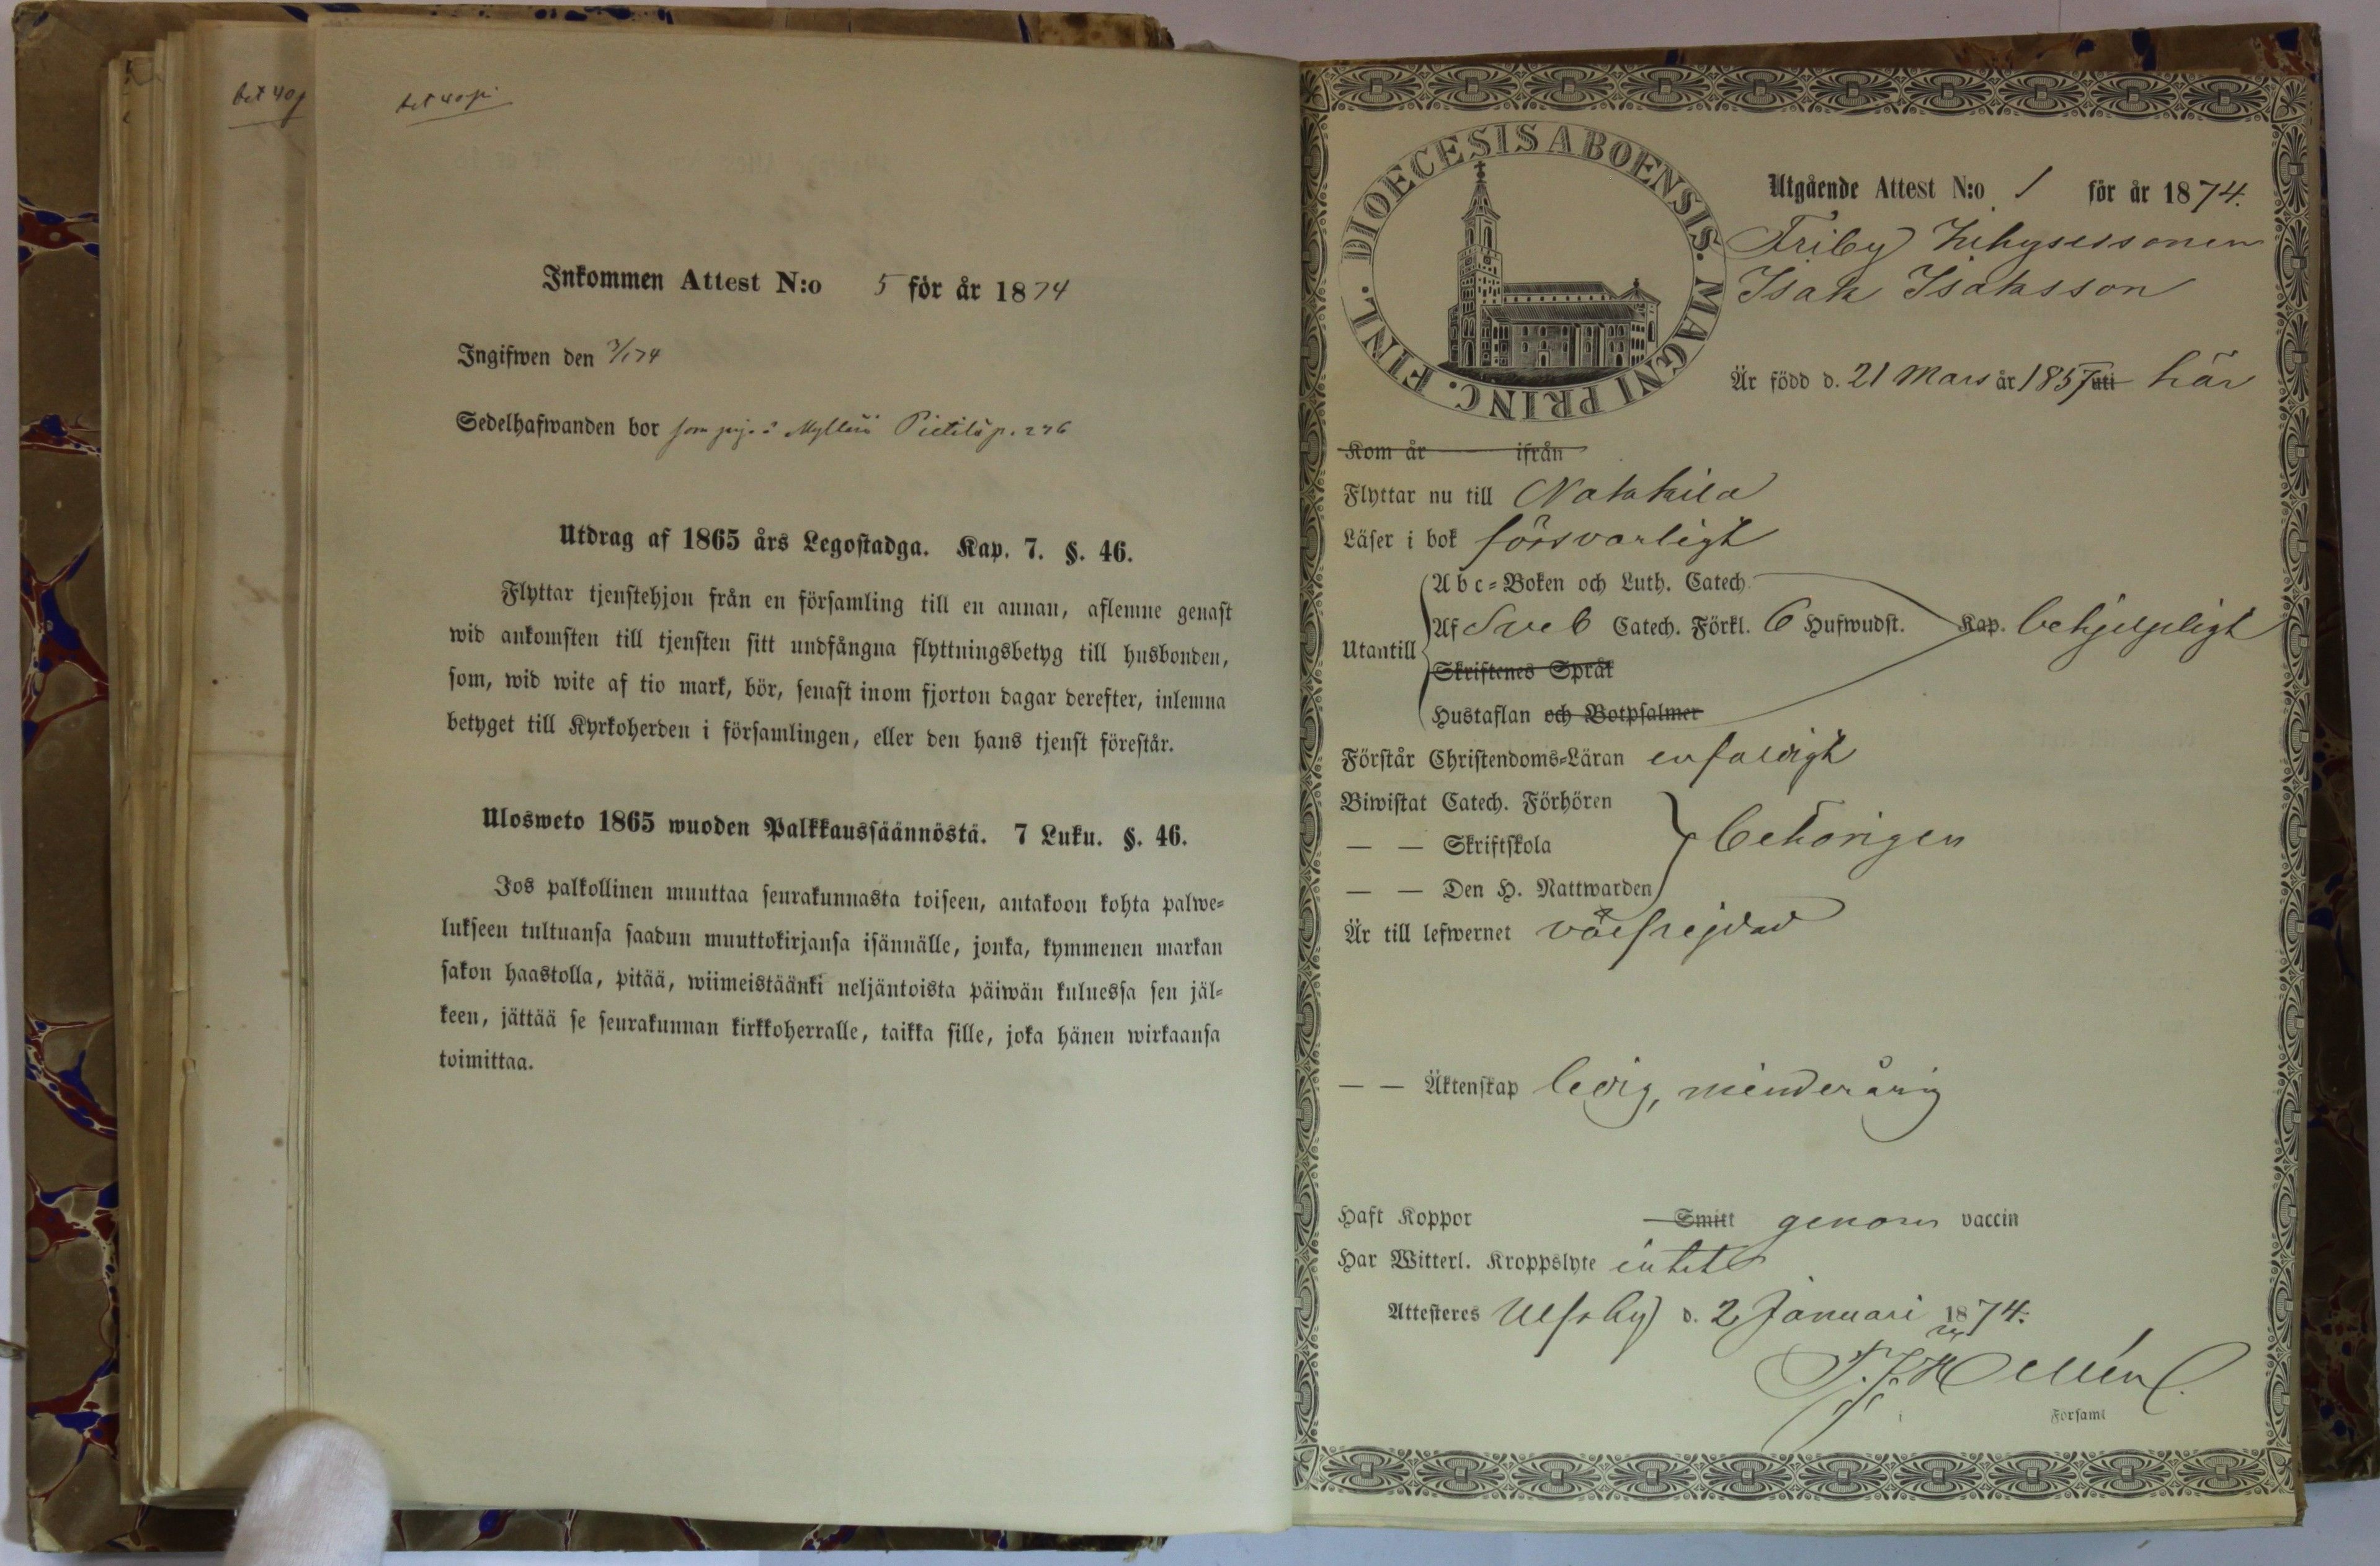 bet 40 p
bet 40 pi
Inkommen Attest N:o 5 för år 1874
Ingifwen den 3/1 74
Sedelhafwanden bor som Pietilä p. 276
Utdrag af 1865 års Legostadga. Kap. 7. §. 46.
Flyttar tjenstehjon från en församling till en annan, aflemne genast
wid ankomsten till tjensten sitt undfångna flyttningsbetyg till husbonden,
som, wid wite af tio mark, bör, senast inom fjorton dagar derefter, inlemna
betyget till Kyrkoherden i församlingen, eller den hans tjenst förestår.
Ulosweto 1865 wuoden Palkkaussäännöstä. 7 Luku. §. 46.
Jos palkollinen muuttaa seurakunnasta toiseen, antakoon kohta palwe=
lukseen tultuansa saadun muuttokirjansa isännälle, jonka, kymmenen markan
sakon haastolla, pitää, wiimeistäänki neljäntoista päiwän kuluessa sen jäl=
keen, jättää se seurakunnan kirkkoherralle, taikka sille, joka hänen wirkaansa
toimittaa.
DIOECESIS ABOENSIS. MAGNI PRINC. FINL.
Utgående Attest N:o 1 för år 1874.
Friby
Isak Isaksson
Är född d. 21 Mars år 1857 uti här
Kom år ifrån
Flyttar nu till Nakkila
Läser i bok försvarligt
Utantill
Abc=Boken och Luth. Catech.
Af Sveb Catech. Förkl. 6 Hufwudst. Kap. behjelpligt
Skriftenes Språk
Hustaflan och Botpsalmer
Förstår Christendoms=Läran enfaldigt
Biwistat Catech. Förhören
— — Skriftskola behörigen
— — Den H. Nattwarden
Är till lefwernet välfrejdad
— — Äktenskap ledig, minderårig
Haft Koppor Smitt genom vaccin
Har Witterl. Kroppslyte intet
Attesteres Ulfsby d. 2 Januari 1874.
Hellén
i Församl